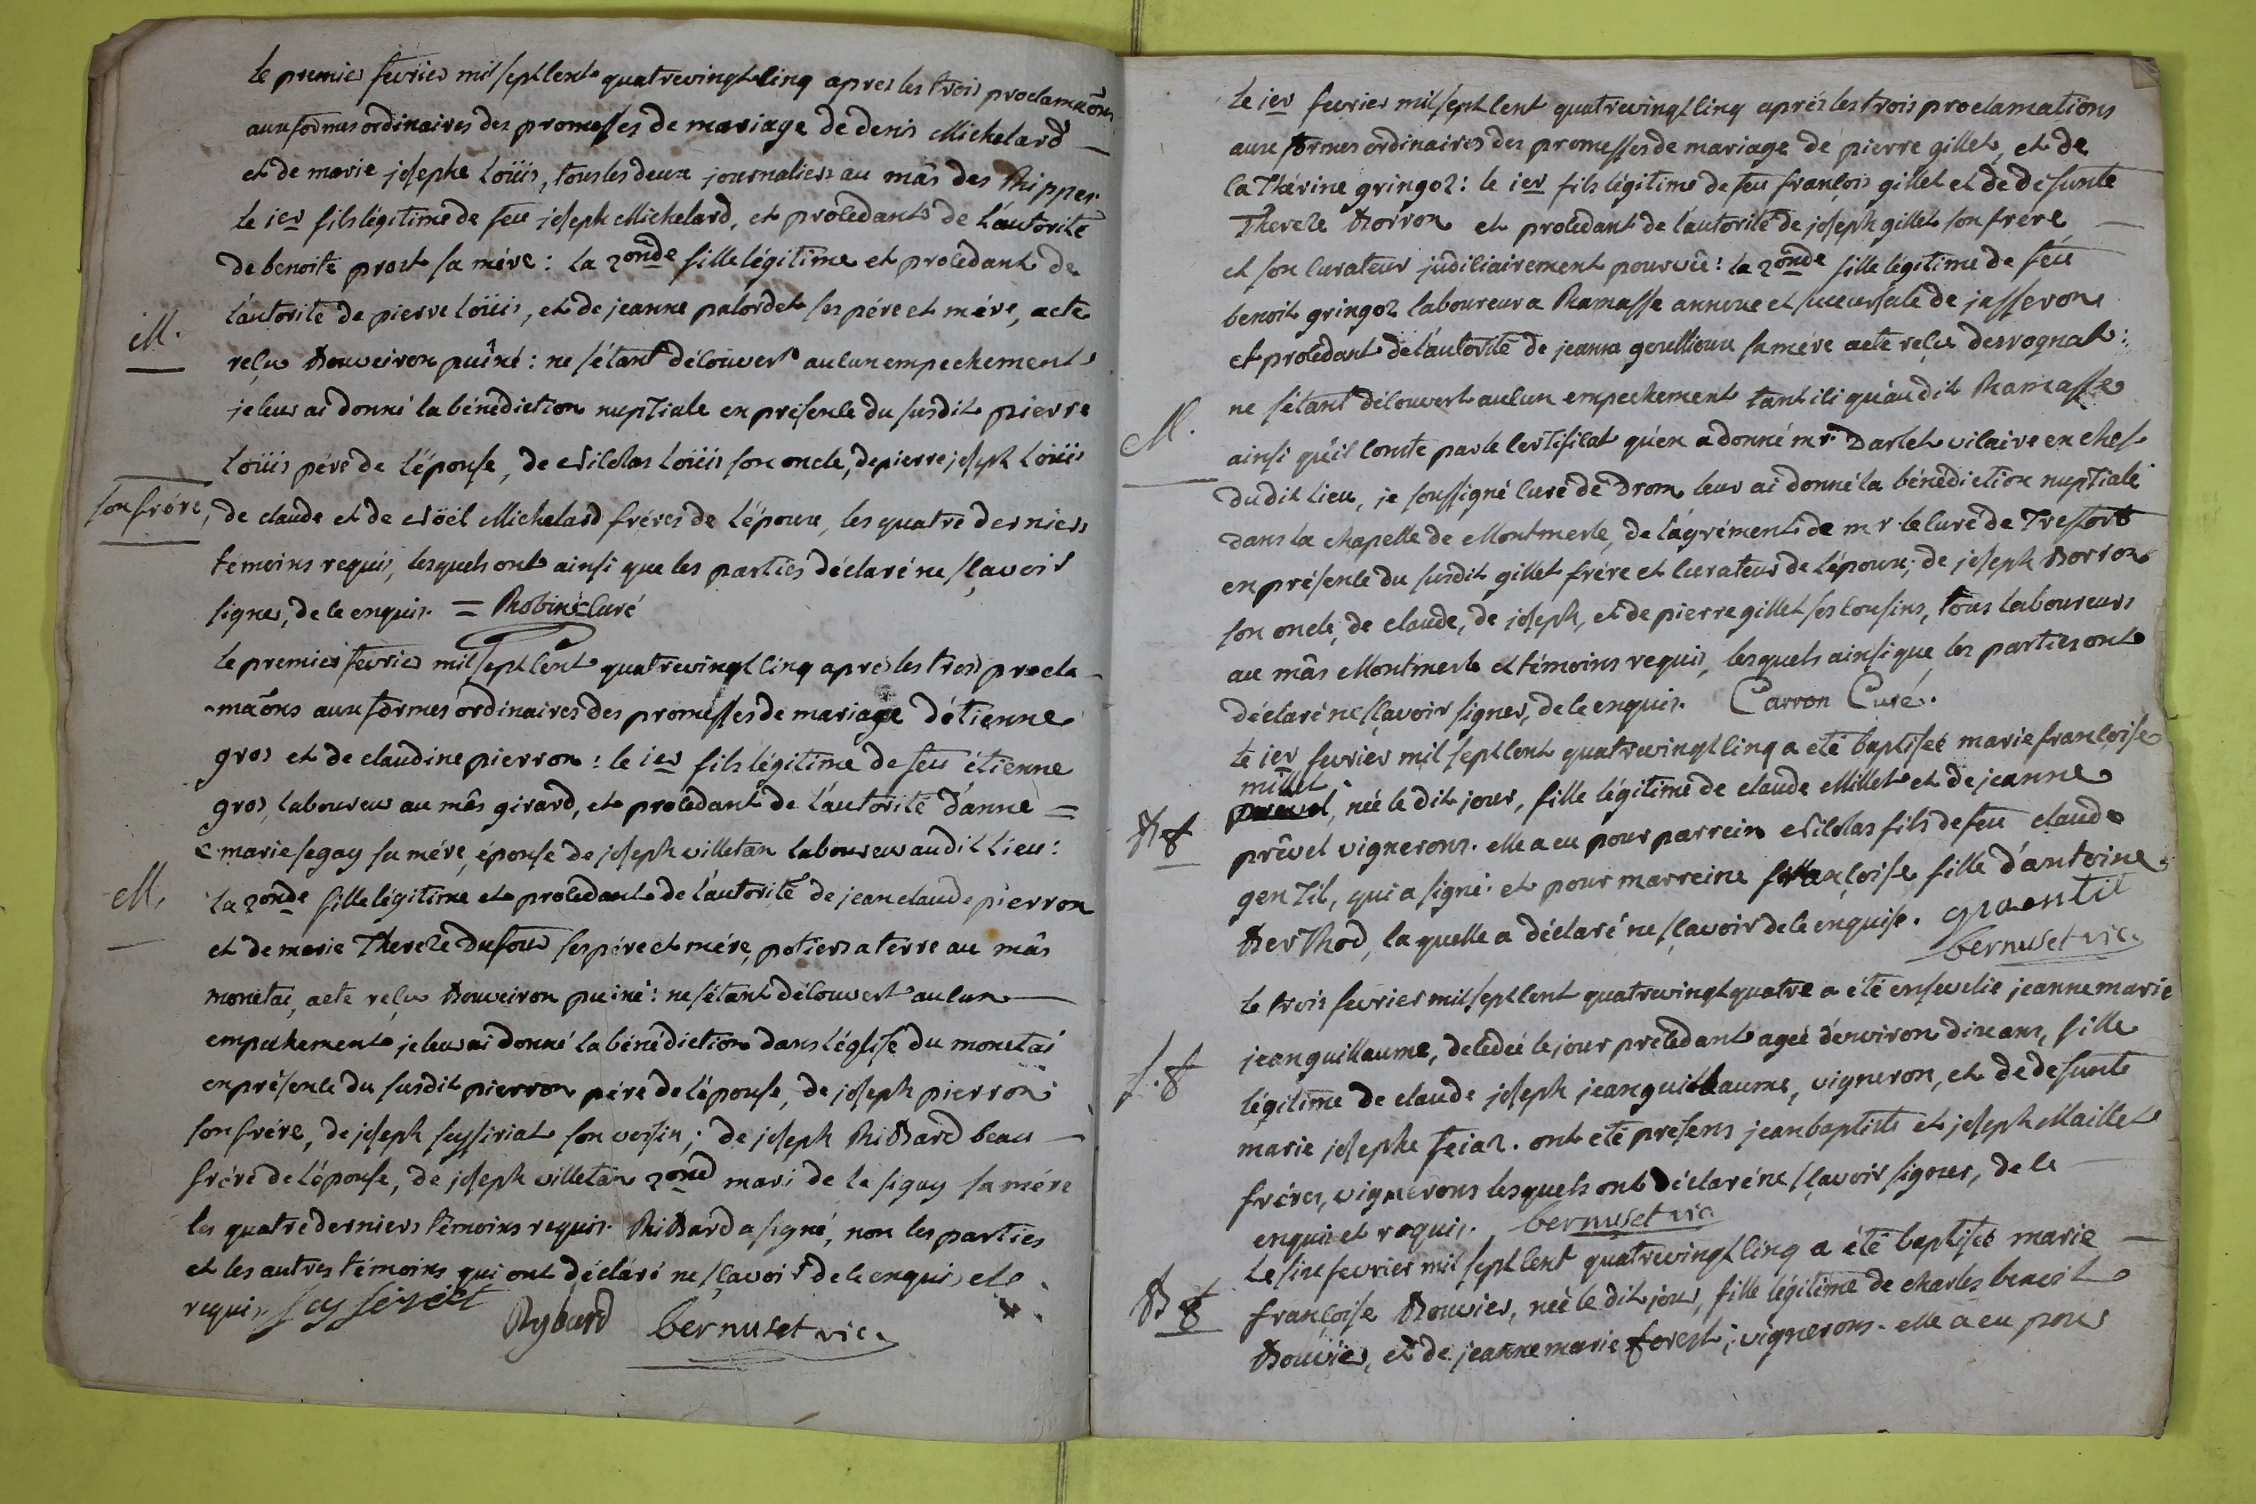 le premier fevrier mil sept cent quatrevingt cinq apres les trois proclamaõns
aux formes ordinaires des promesses de mariage de denis Michelard
et de marie josephe Loüis, tous les deux journaliers au mâs des Rippes.
le ier fils légitime de feu joseph Michelard, et procedant de l'autorité
de benoite prost sa mére : la 2onde fille légitime et procedant de
l'autorité de pierre loüis, et de jeanne palordet ses pére et mére, acte
M.
reçu Bouveiron puîné : ne s'étant découvert aucun empechement
je leur ai donné la bénédiction nuptiale en présence du susdit pierre
Loüis pére de l'épouse, de Nicolas Loüis son oncle, de pierre joseph Loüis
son frére,
de claude et de Nöël Michelard fréres de l'époux, les quatre derniers
témoins requis, lesquels ont ainsi que les parties déclaré ne sçavoir
signer, de ce enquis. = Robin curé
le premier fevrier mil sept cent quatrevingt cinq aprés les trois procla-
-maõns aux formes ordinaires des promesses de mariage d'étienne
gros et de claudine pierron : le ier fils légitime de feu étienne
gros, laboureur au mâs girard, et procedant de l'autorité d'anne =
= marie segay sa mére, épouse de joseph villetan laboureur audit lieu :
M.
la 2onde fille légitime et procedant de l'autorité de jean claude pierron
et de marie Therese Dufour ses pére et mére, potiers a terre au mâs
monetai, acte reçu Bouveiron puiné : ne s'étant découvert aucun
empechement je leur ai donné la bénédiction dans l'église du monetai
en présence du susdit pierron pére de l'épouse, de joseph pierron
son frére, de joseph seyssiriat son voisin ; de joseph Ribbard beau
frére de l'épouse, de joseph villetan 2ond mari de la sigay sa mére
les quatre derniers témoins requis. Ribbard a signé, non les parties
et les autres témoins qui ont déclaré ne sçavoir de ce enquis et
requis
Rybard bernuset vic.
le ier fevrier mil sept cent quatrevingt cinq aprés les trois proclamations
aux formes ordinaires des promesses de mariage de pierre gillet, et de
catherine gringoz : le ier fils légitime de feu françois gillet et de defunte
Therese Borron et procedant de l'autorité de joseph gillet son frere
et son curateur judiciairement pourvû : la 2onde fille légitime de feu
benoit gringoz laboureur a Ramasse annexe et succursale de jasseron
et procedant de l'autorité de jeanne goullioux sa mére acte reçu desrognat :
ne s'étant découvert aucun empechement tant ici qu'audit Ramasse
M.
ainsi qu'il conste par le certificat qu'en a donné mr Darlet vicaire en chef
dudit lieu, je soussigné curé de Drom leur ai donné la bénédiction nuptiale
dans la chapelle de Montmerle, de l'agrément de mr le curé de Treffort
en présence du susdit gillet frére et curateur de l'époux ; de joseph Borron
son oncle, de claude, de joseph, et de pierre gillet ses cousins, tous laboureurs
au mâs Montmerle et témoins requis, lesquels ainsi que les parties ont
déclaré ne sçavoir signer, de ce enquis. Carron Curé.
le ier fevrier mil sept cent quatrevingt cinq a été baptisée marie françoise
millet
née le dit jour, fille légitime de claude Millet et de jeanne
B f
prêvel vignerons. elle a eu pour parrein Nicolas fils de feu claude
gentil, qui a signé. et pour marreine françoise fille d'antoine
Berthod, laquelle a déclaré ne sçavoir de ce enquise. gentil
bernuset vic.
le trois fevrier mil sept cent quatrevingt quatre a été ensevelie jeanne marie
jeanguillaume, decedée le jour précedant agée d'environ dix ans, fille
f. f
légitime de claude joseph jeanguillaume, vigneron, et de defunte
marie josephe feiaz. ont été presens jean baptiste et joseph Maillet
fréres, vignerons lesquels ont déclaré ne sçavoir signer, de ce
enquis et requis. bernuset vic
le six fevrier mil sept cent quatrevingt cinq a été baptisée marie
B f
françoise Bouvier, née le dit jour, fille légitime de charles benoit
Bouvier, et de jeanne marie forest ; vignerons. elle a eu pour